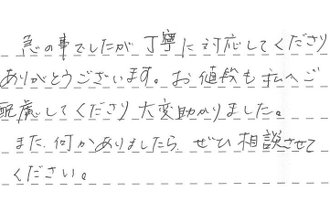 急の事でしたが丁寧に対応してくださり
ありがとうございます。お値段も私へご
配慮してくださり大変助かりました。
また何かありましたら ぜひ相談させて
ください。